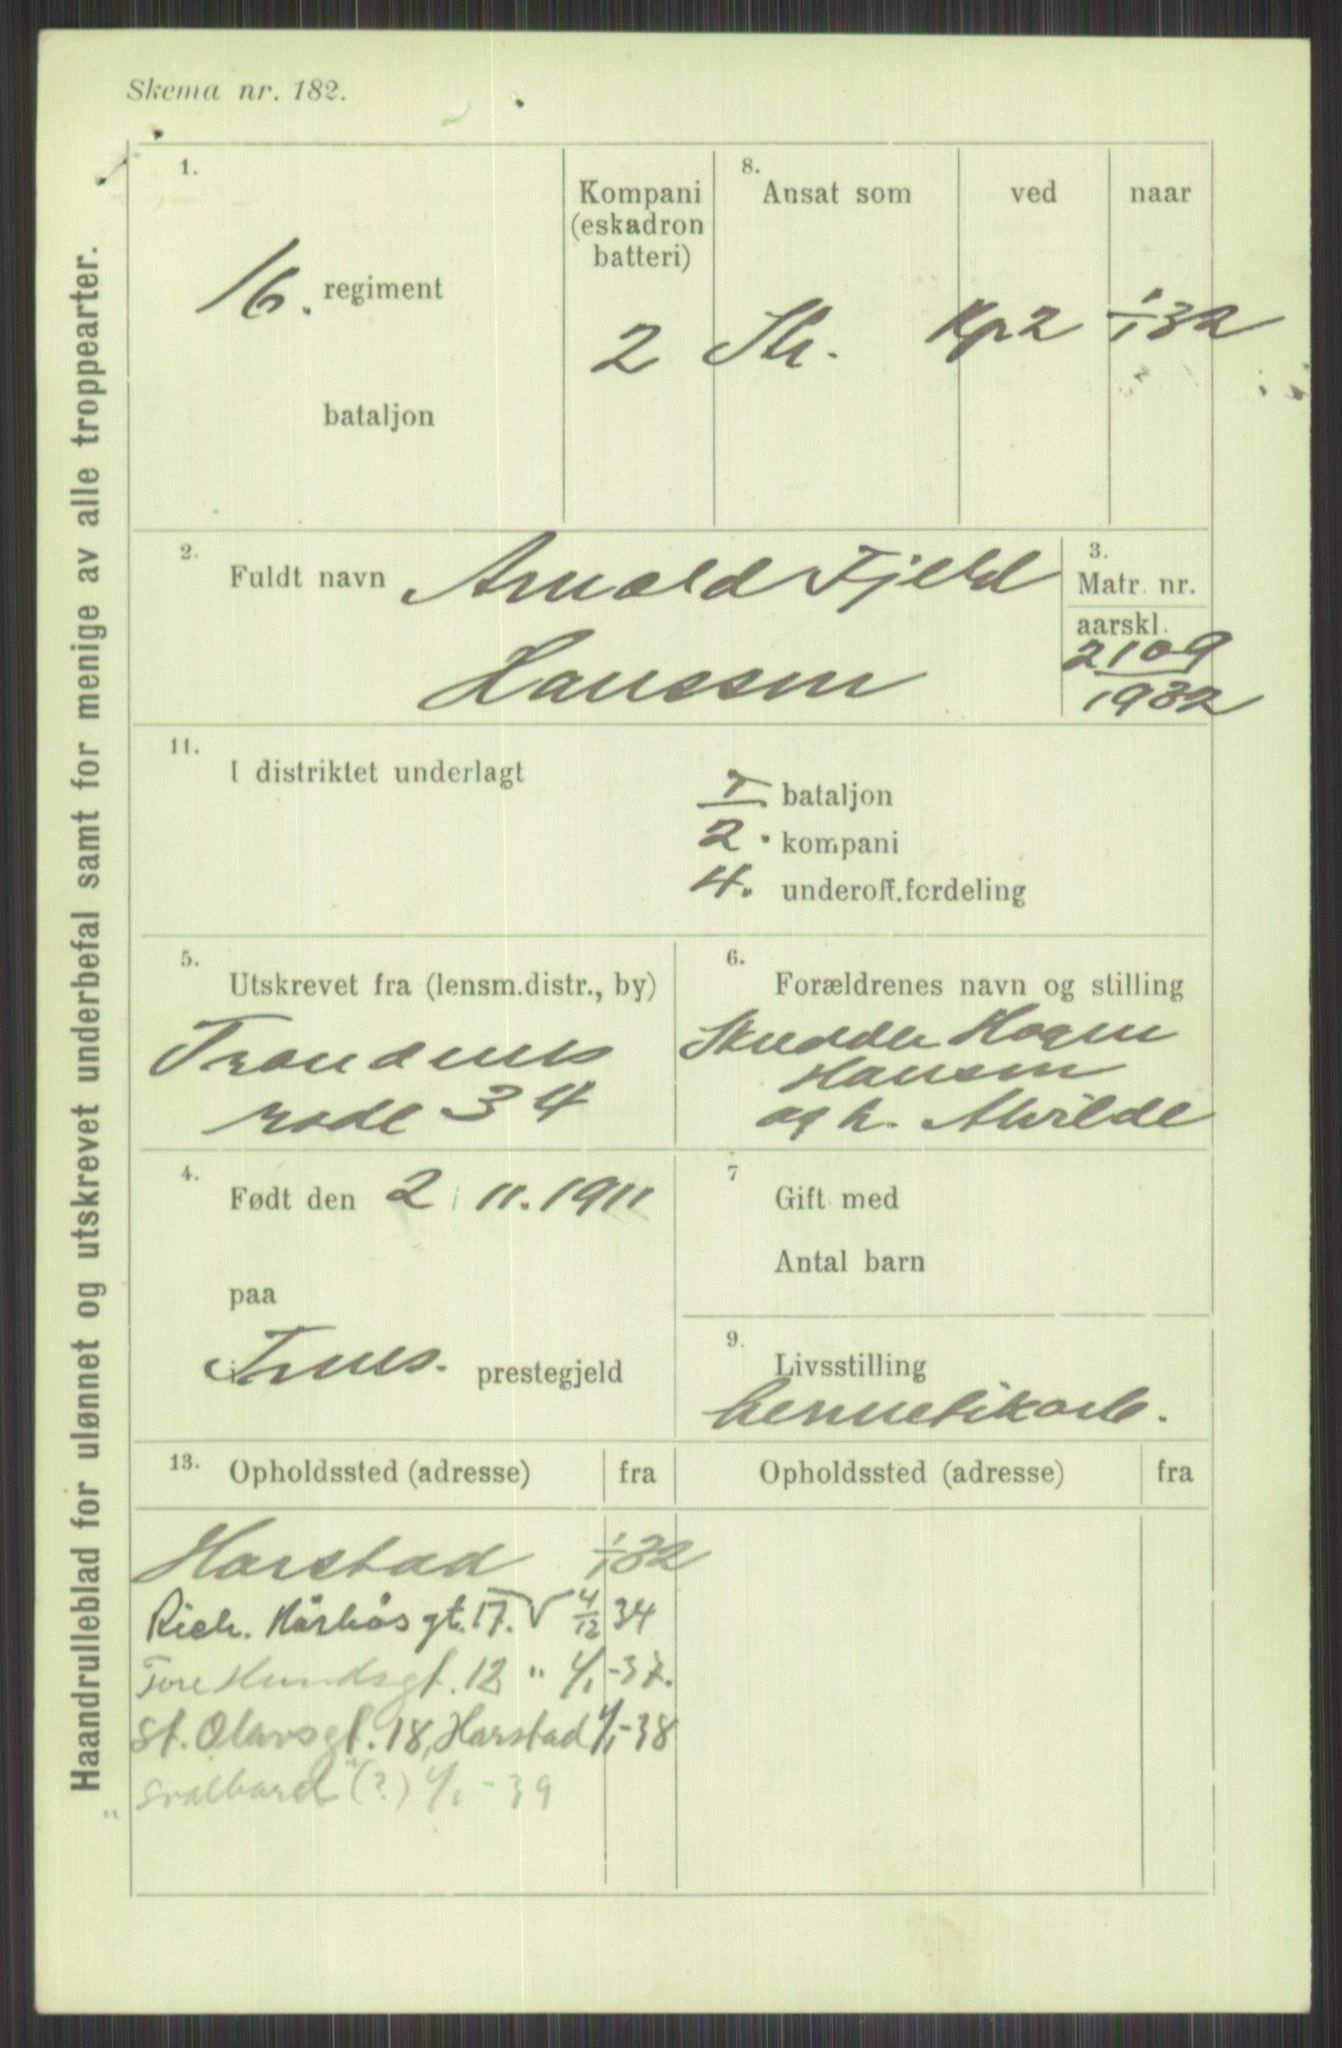 Skema nr. 182.
Haandrulleblad for ulønnet og utskrevet underbefal samt for menige av alle troppearter.
1.
16. regiment
bataljon
Kompani
(eskadron
batteri)
2
8.
Ansat som
ved
naar
Kp 2
1/1 32
2.
Fuldt navn Arnold Fjeld
Hanssen
3.
Matr. nr.
aarskl.
2109
1932
11.
I distriktet underlagt
I. bataljon
2. kompani
4. underoff.fordeling
5.
Utskrevet fra (lensm.distr., by)
Trondenes
rode 34
6.
Forældrenes navn og stilling
Hansen
og h. Alvilde
4.
Født den 2 11. 1911
paa
Trnes. prestegjeld
7
Gift med
Antal barn
9.
Livsstilling
hermetikarb.
13.
Opholdssted (adresse)
fra
Opholdssted (adresse)
fra
Harstad 1/1 32
Rich. Kårbøs gt. 17. V 4/12 34
Tore Hundsgt. 12 " 1/1-37.
St. Olavsgt. 18, Harstad 1/1-38
" Svalbard" (?) 1/1-39